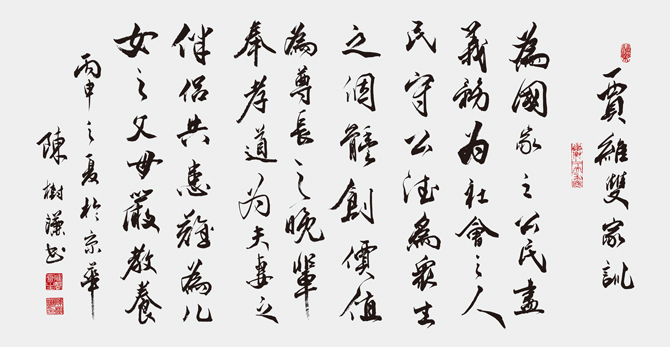 賈維雙家訓
為國家之公民盡
義務为社會之人
民守公德為眾生
之個體創價值
為尊長之晚輩
奉孝道为夫妻之
伴侶共患難為儿
女之父母嚴教養
丙申之夏於京華
陳樹謙书